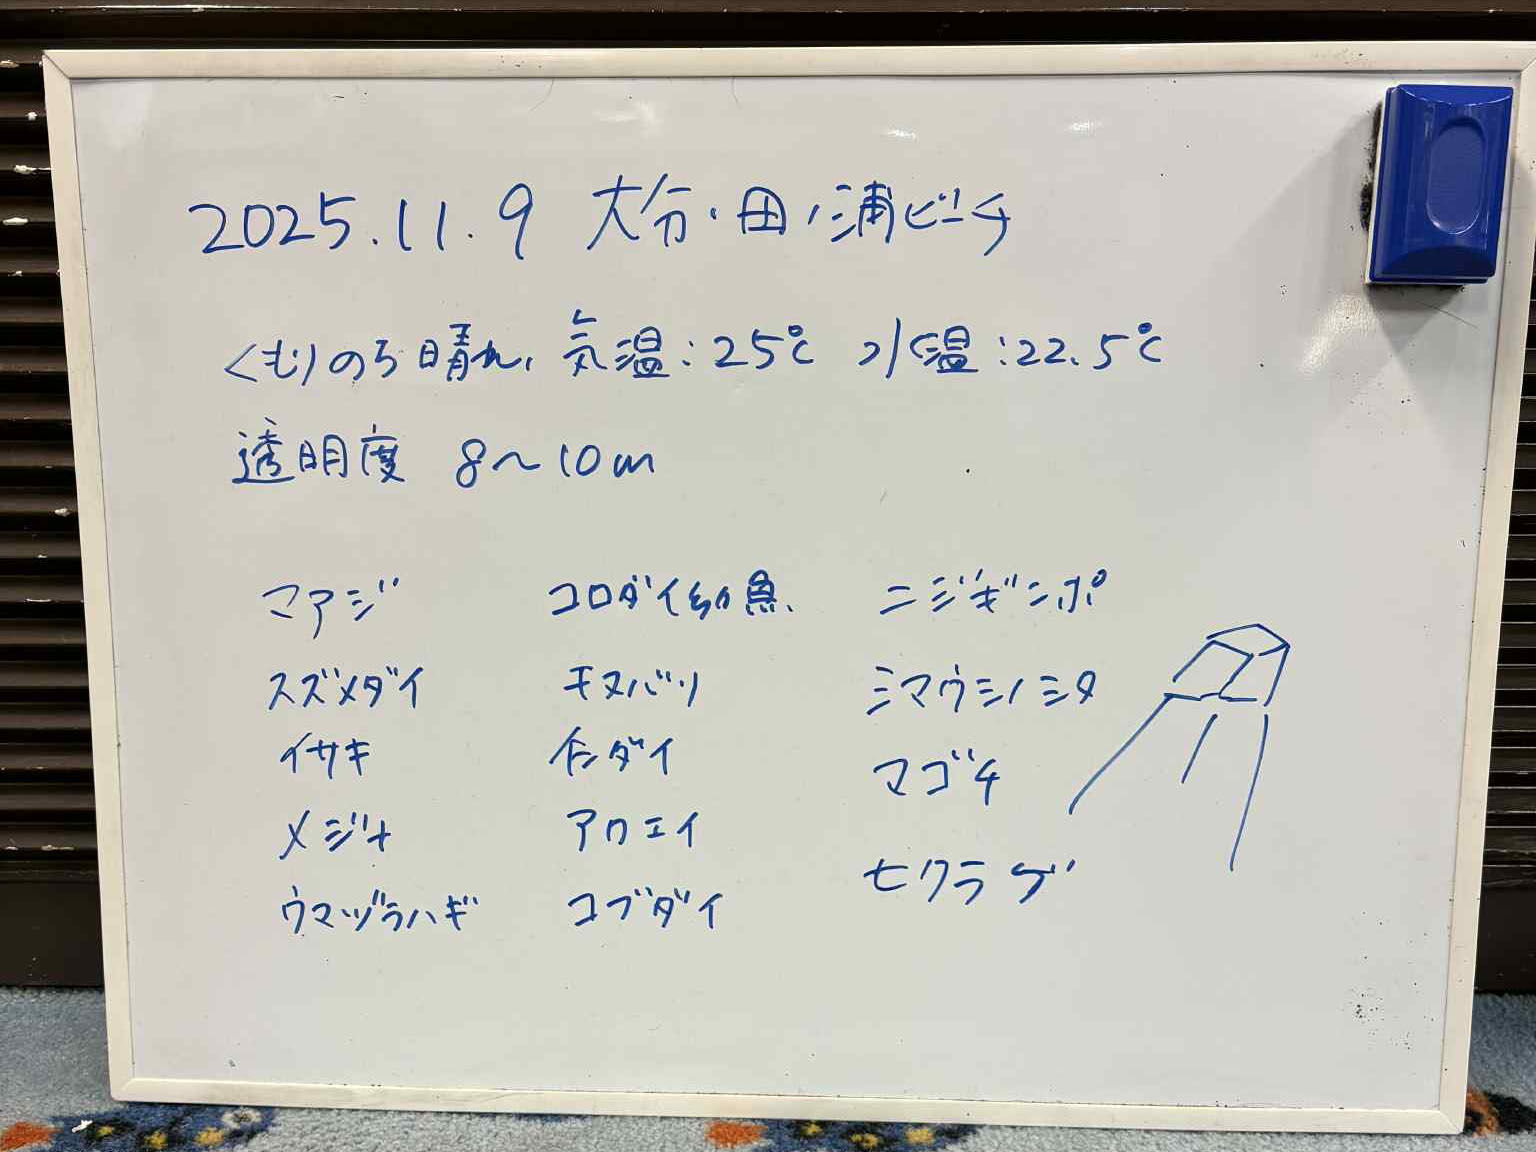 2025.11.9 大分・田ノ浦ビーチ
くもりのち晴れ、気温:25℃ 水温:22.5℃
透明度 8〜10m
マアジ コロダイ幼魚 ニジギンポ
スズメダイ キヌバリ ミマウシノシタ
イサキ イシダイ マゴチ
メジナ アカエイ
ウマヅラハギ コブダイ セクラゲ